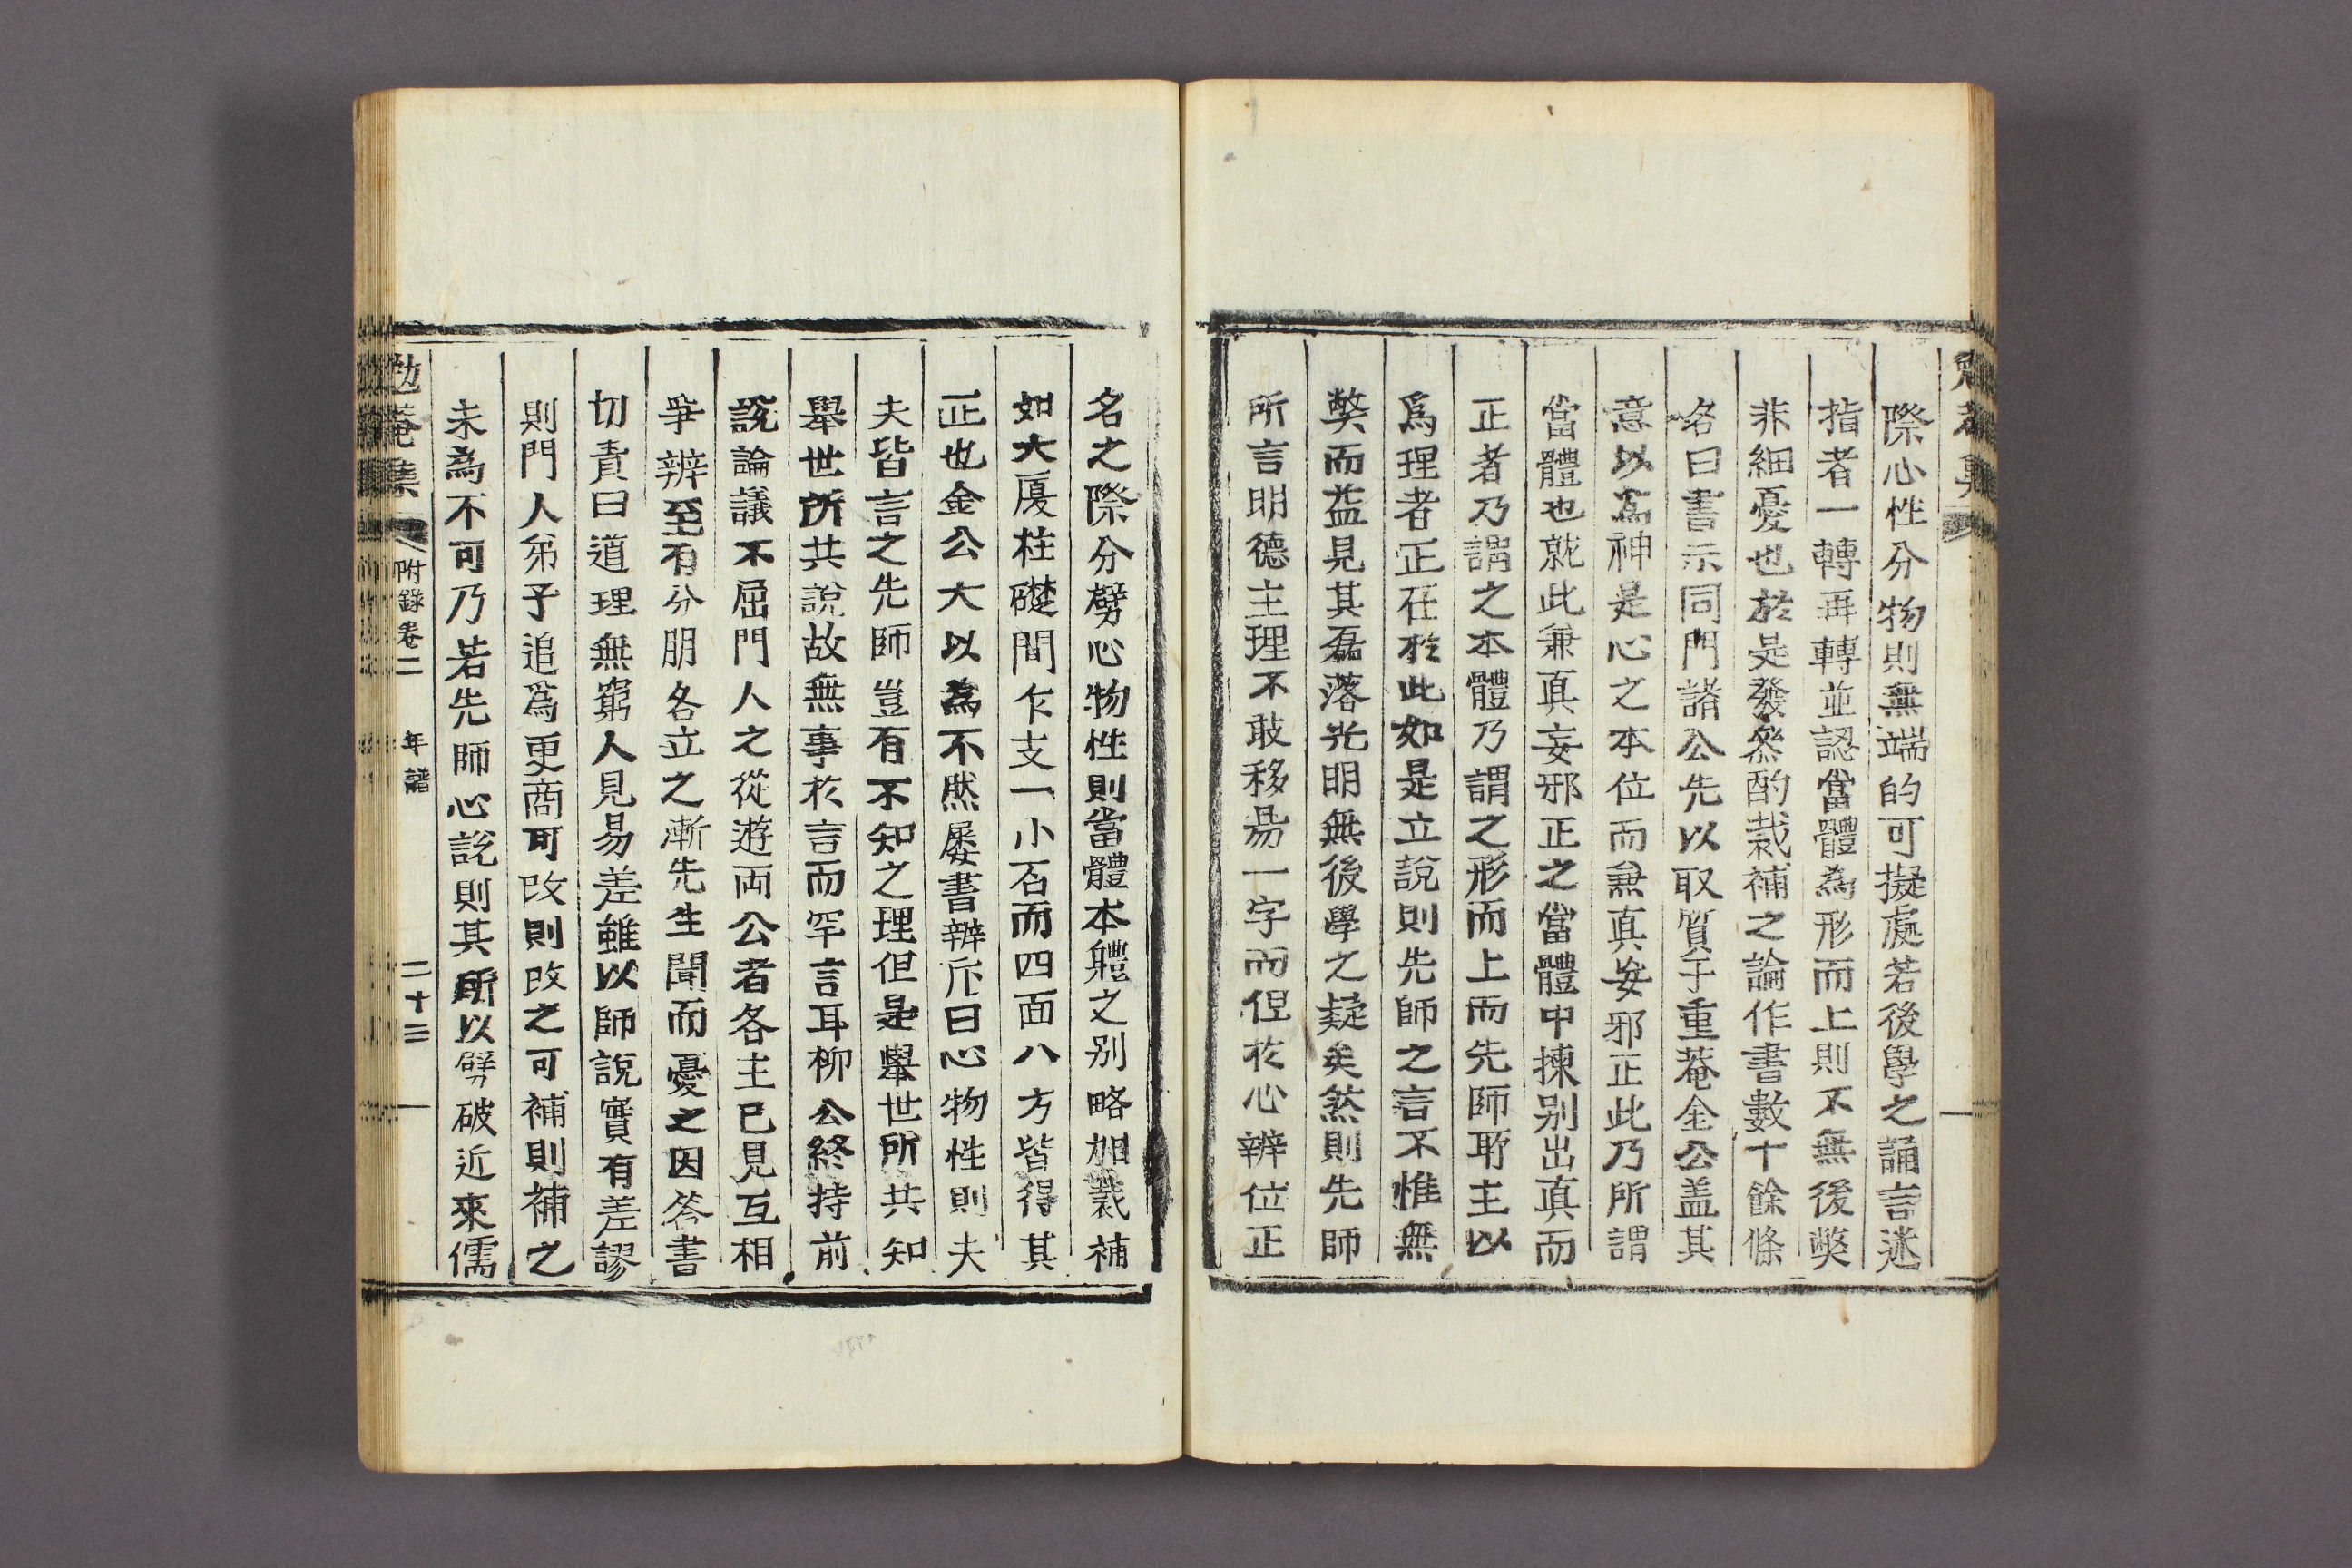 際心性分物則無端的可擬處若後學之誦言迷
指者一轉再轉並認當體為形而上則不無後獘
非細憂也於是發叅酌裁補之論作書數十餘條
名曰書示同門諸公先以取質于重菴金公盖其
意以為神是心之本位而兼真妄邪正此乃所謂
當體也就此兼真妄邪正之當體中揀别出真而
正者乃謂之本體乃謂之形而上而先師所主以
爲理者正在於此如是立說則先師之言不惟無
獘而益見其磊落光明無後學之疑矣然則先師
所言明德主理不敢移易一字而但於心辨位正
名之際分劈心物性則當體本軆之别略加裁補
如大厦柱礎間乍支一小石而四面八方皆得其
正也金公大以為不然屢書辨斥曰心物性則夫
夫皆言之先師豈有不知之理但是舉世所共知
舉世所共說故無事於言而罕言耳柳公終持前
說論議不屈門人之從遊両公者各主已見互相
爭辨至有分朋各立之漸先生聞而憂之因答書
切責曰道理無窮人見易差雖以師說實有差謬
則門人弟子追爲更商可改則改之可補則補之
未為不可乃若先師心說則其所以劈破近來儒
勉菴集 附錄卷二 年譜 二十三